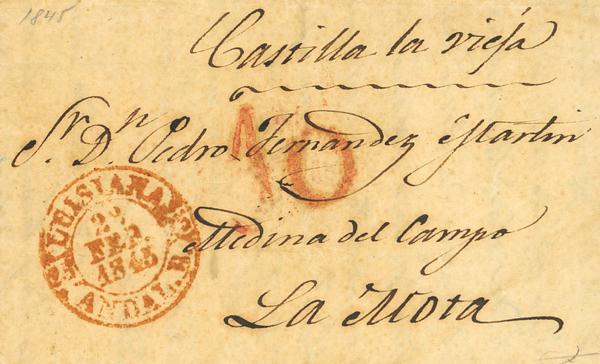 1845
Castilla la vieja
Sr. Dn. Pedro Fernandez Martin
10
Medina del Campo
La Mota
FEB
1845
ANDAL. B.